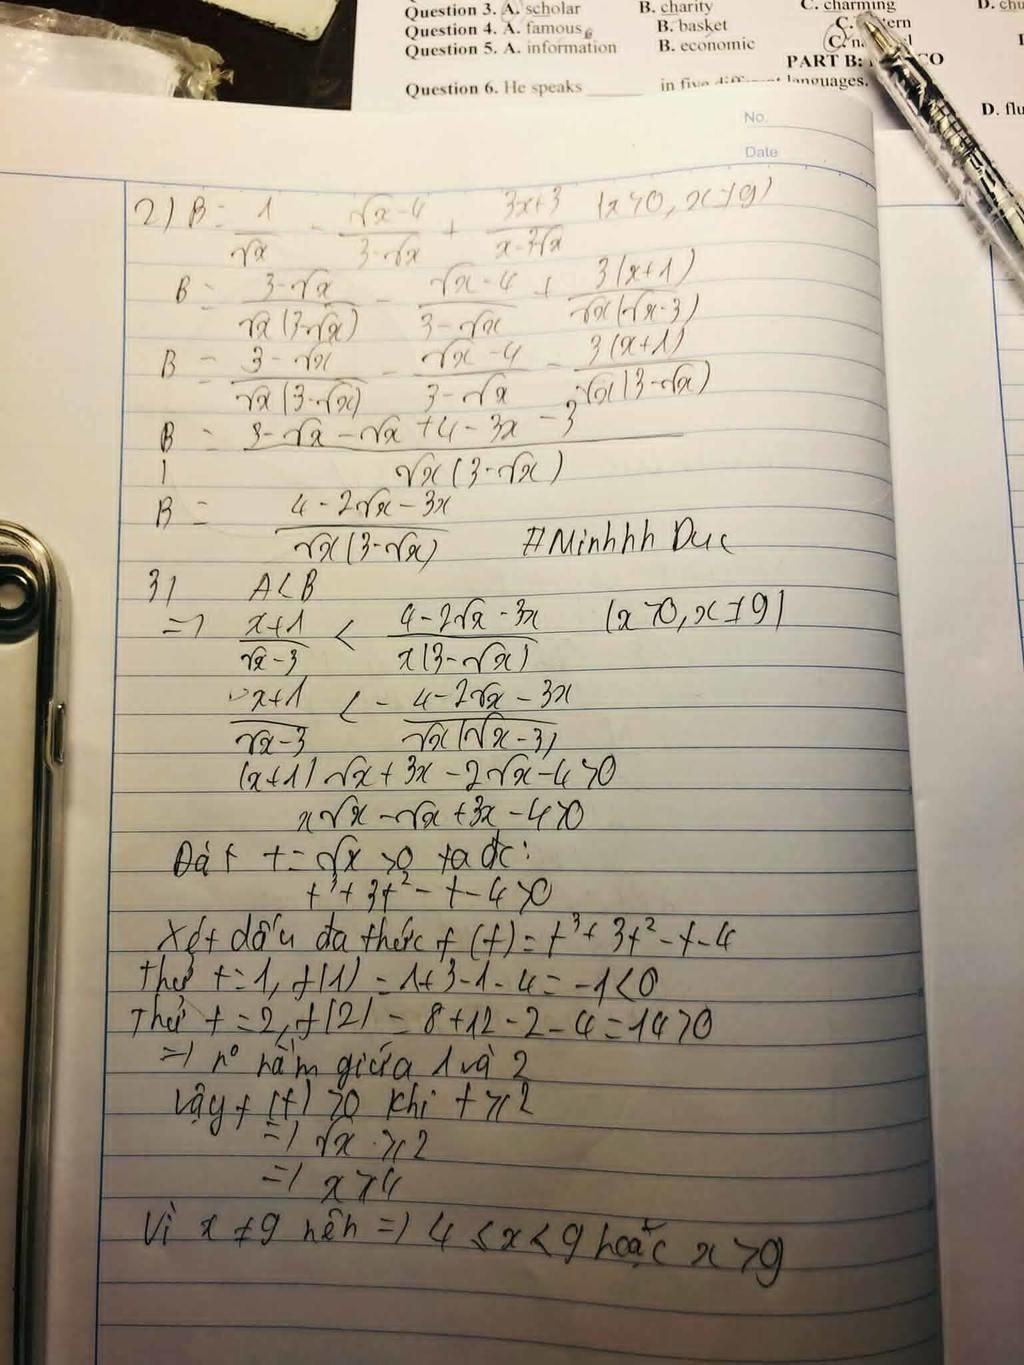 Question 3. A. scholar B. charity C. charming D. chu
Question 4. A. famous B. basket C.
Question 5. A. information B. economic C.
PART B:
Question 6. He speaks ______ in five languages.
D. flu
No.
Date
2) B = 1/√x - (√x-4)/(3-√x) + (3x+3)/(x-3√x) (x>0, x≠9)
B = (3-√x)/(√x(3-√x)) - (√x-4)/(3-√x) + 3(x+1)/(√x(√x-3))
B = (3-√x)/(√x(3-√x)) - (√x-4)/(3-√x) - 3(x+1)/(√x(3-√x))
B = (3-√x-√x+4-3x-3)/(√x(3-√x))
B = (4-2√x-3x)/(√x(3-√x)) #Minhhh Duc
3) A<B
=> (x+1)/(√x-3) < (4-2√x-3x)/(x(3-√x)) (x>0, x≠9)
(x+1)/(√x-3) < - (4-2√x-3x)/(√x(√x-3))
(x+1)√x+3x-2√x-4>0
x√x-√x+3x-4>0
Đặt t=√x>0 ta đc:
t³+3t²-t-4>0
Xét dấu đa thức f(t)=t³+3t²-t-4
Thử t=1, f(1)=1+3-1-4=-1<0
Thử t=2, f(2)=8+12-2-4=14>0
=> n° nằm giữa 1 và 2
Vậy f(t)>0 khi t≥2
=> √x≥2
=> x≥4
Vì x≠9 nên => 4≤x<9 hoặc x>9